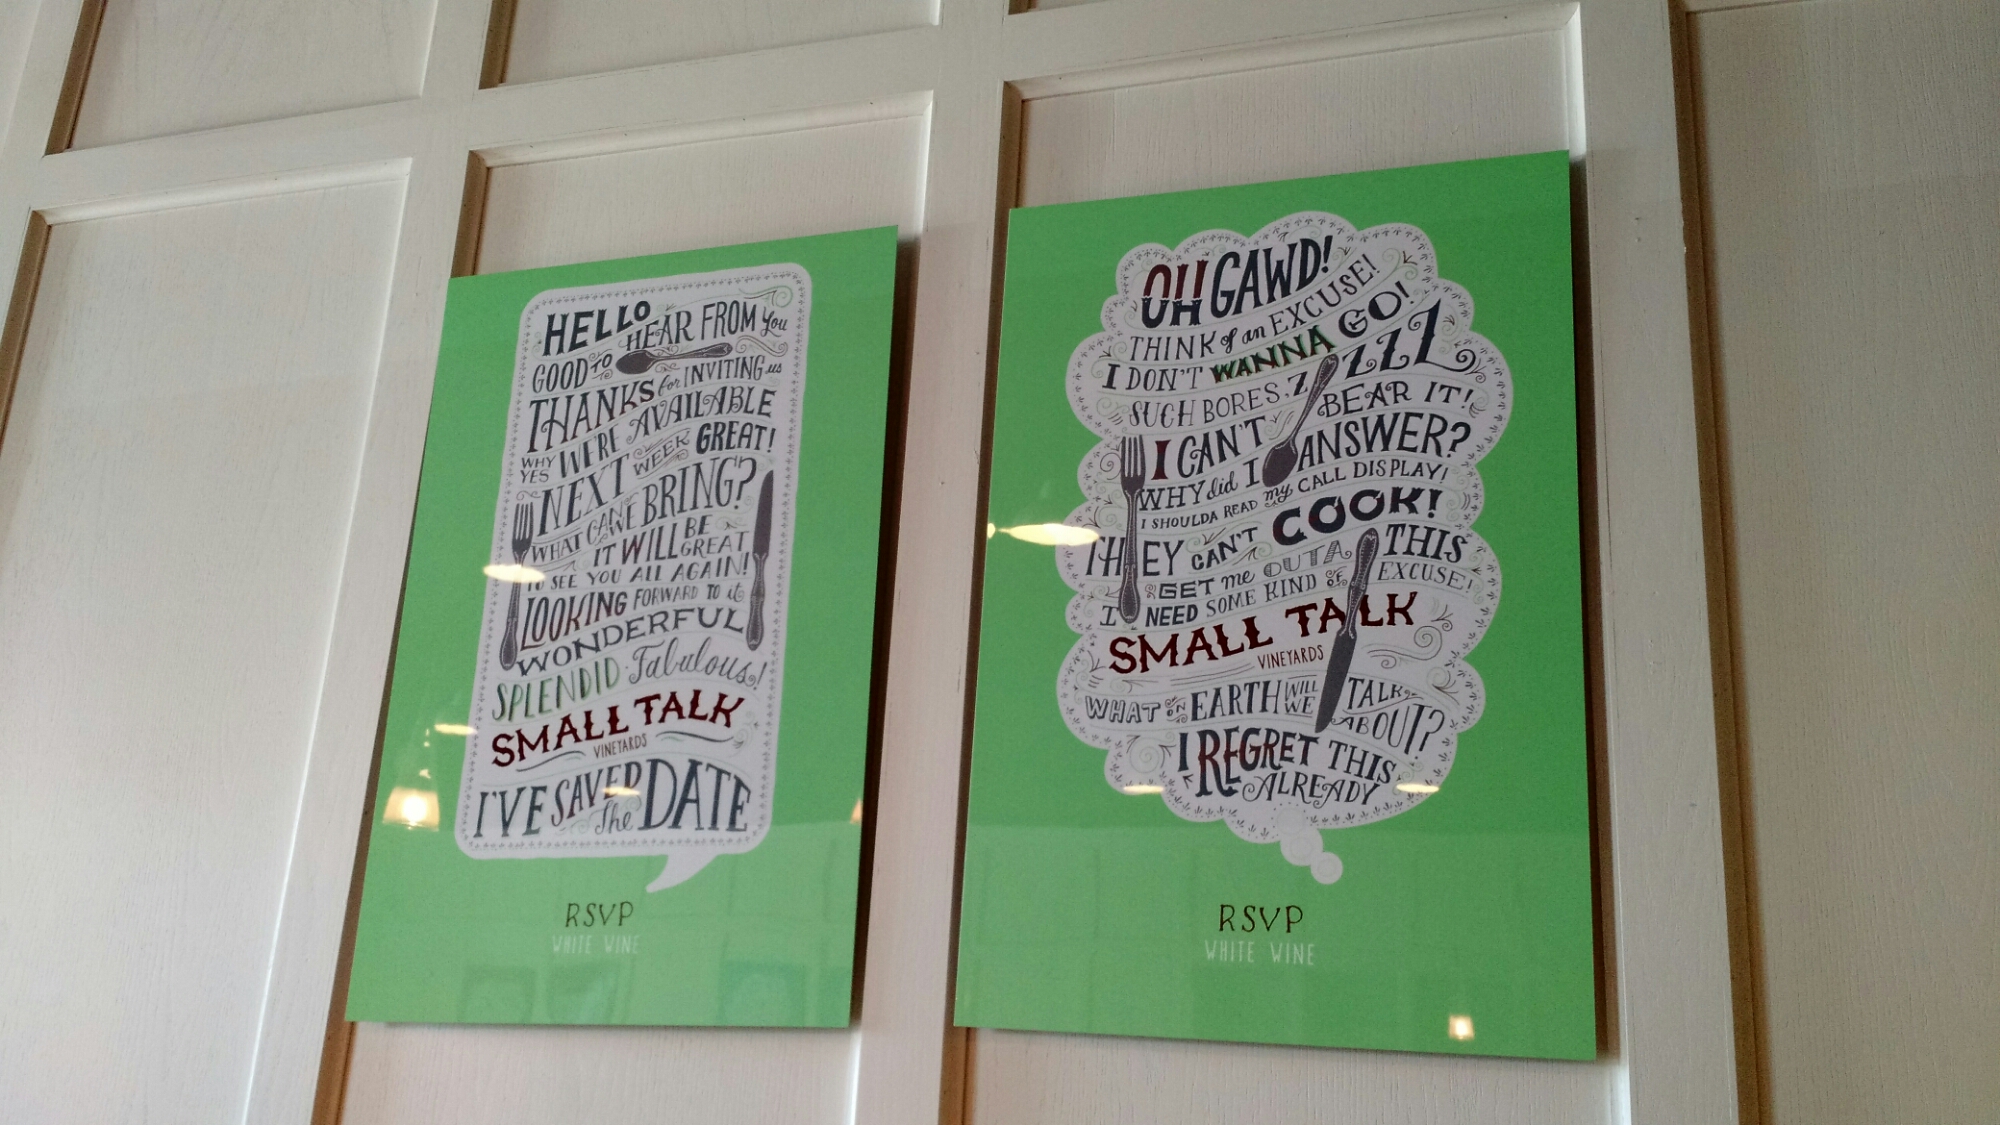 HELLO
GOOD TO HEAR FROM You
THANKS for INVITING us
WHY YES WE'RE AVAILABLE
NEXT WEEK GREAT!
WHAT CAN WE BRING?
IT WILL BE GREAT
TO SEE YOU ALL AGAIN!
LOOKING FORWARD TO it
WONDERFUL
SPLENDID Fabulous!
SMALL TALK
VINEYARDS
I'VE SAVED The DATE
RSVP
WHITE WINE
OH GAWD!
THINK of an EXCUSE!
I DON'T WANNA GO!
SUCH BORES. ZZZZZ
I CAN'T BEAR IT!
WHY did I ANSWER?
I SHOULDA READ my CALL DISPLAY!
THEY CAN'T COOK!
GET me OUTA THIS
I NEED SOME KIND OF EXCUSE!
SMALL TALK
VINEYARDS
WHAT ON EARTH WILL WE TALK ABOUT?
I REGRET THIS
ALREADY
RSVP
WHITE WINE